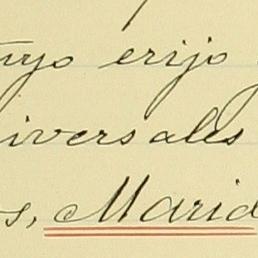 uyo erijo
iversales
s, Marid